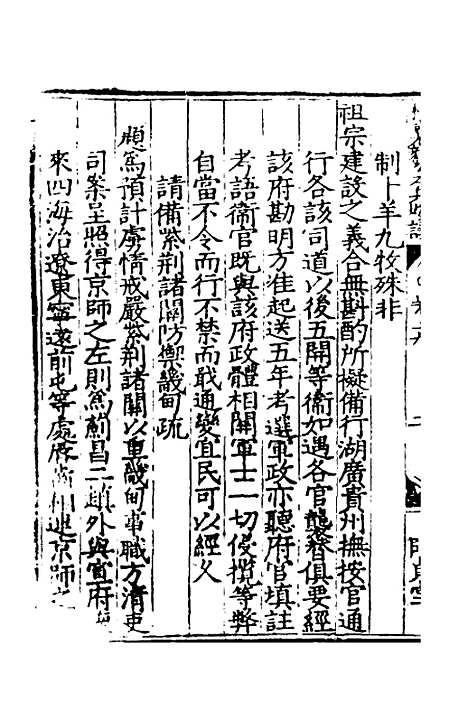 制十羊九牧殊非
祖宗建設之義合無斟酌所擬備行湖廣貴州撫按官通
行各該司道以後五開等衞如遇各官襲替俱要經
該府勘明方准起送五年考選軍政亦聽府官填註
考語衞官既與該府政體相關軍士一切侵攬等弊
自當不令而行不禁而戢通變宜民可以經久
請備紫荆諸關防禦畿甸疏
題爲預計虜情戒嚴紫荆諸關以重畿甸事職方清吏
司案呈照得京師之左則爲薊昌二鎮外與宣府
來四海冶遼東寧遠前屯等處
京師之